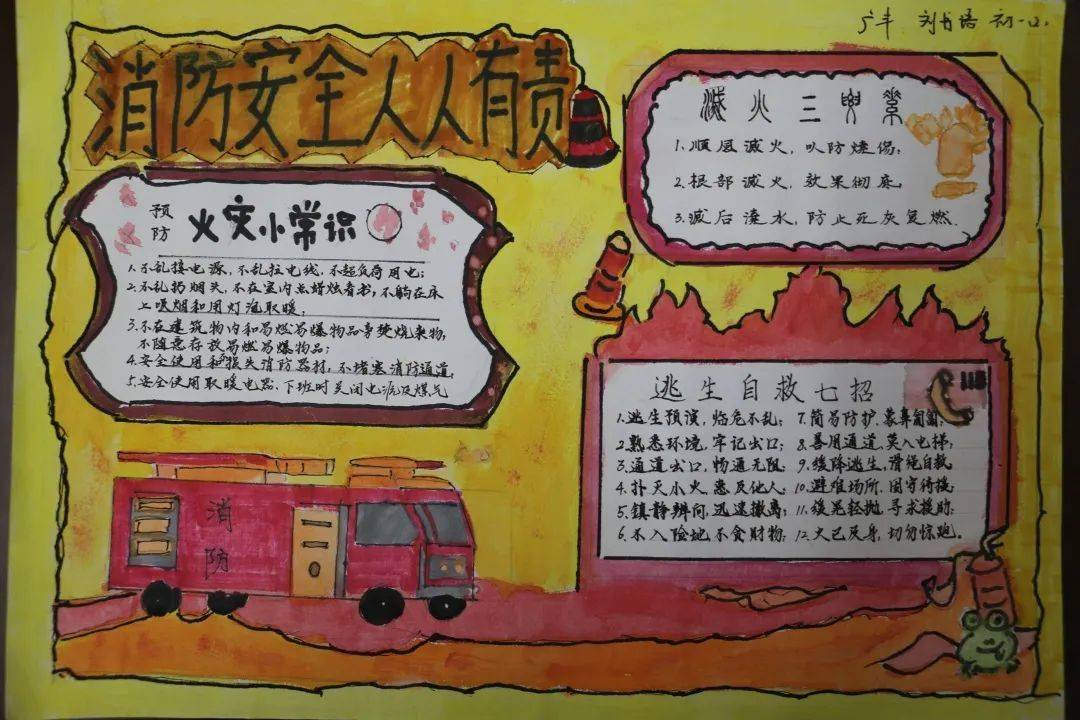 消防安全人人有责
预防
火灾小常识
1.不乱接电源,不乱拉电线,不超负荷用电;
2.不乱扔烟头,不在室内点蜡烛看书,不躺在床
上吸烟和用灯泡取暖;
3.不在建筑物内和易燃易爆物品旁焚烧杂物,
不随意存放易燃易爆物品;
4.安全使用和损失消防器材,不堵塞消防通道
5.安全使用取暖电器、下班时关闭电源及煤气
消防
刘书语 初一
滅火三要素
1.顺层滅火,以防烧伤;
2.根部滅火,效果彻底
3.滅后浇水,防止死灰复燃.
逃生自救七招
1.逃生预演,临危不乱;
2.熟悉环境,牢记出口;
3.通道出口,畅通无阻;
4.扑灭小火,惠及他人;
5.镇静辨向,迅速撤离;
6.不入险地不贪财物;
7.简易防护,蒙鼻匍匐;
8.善用通道 莫入电梯;
9.缓降逃生,滑绳自救
10.避难场所,固守待援
11.缓晃轻抛,寻求援助;
12.火已及身,切勿惊跑。